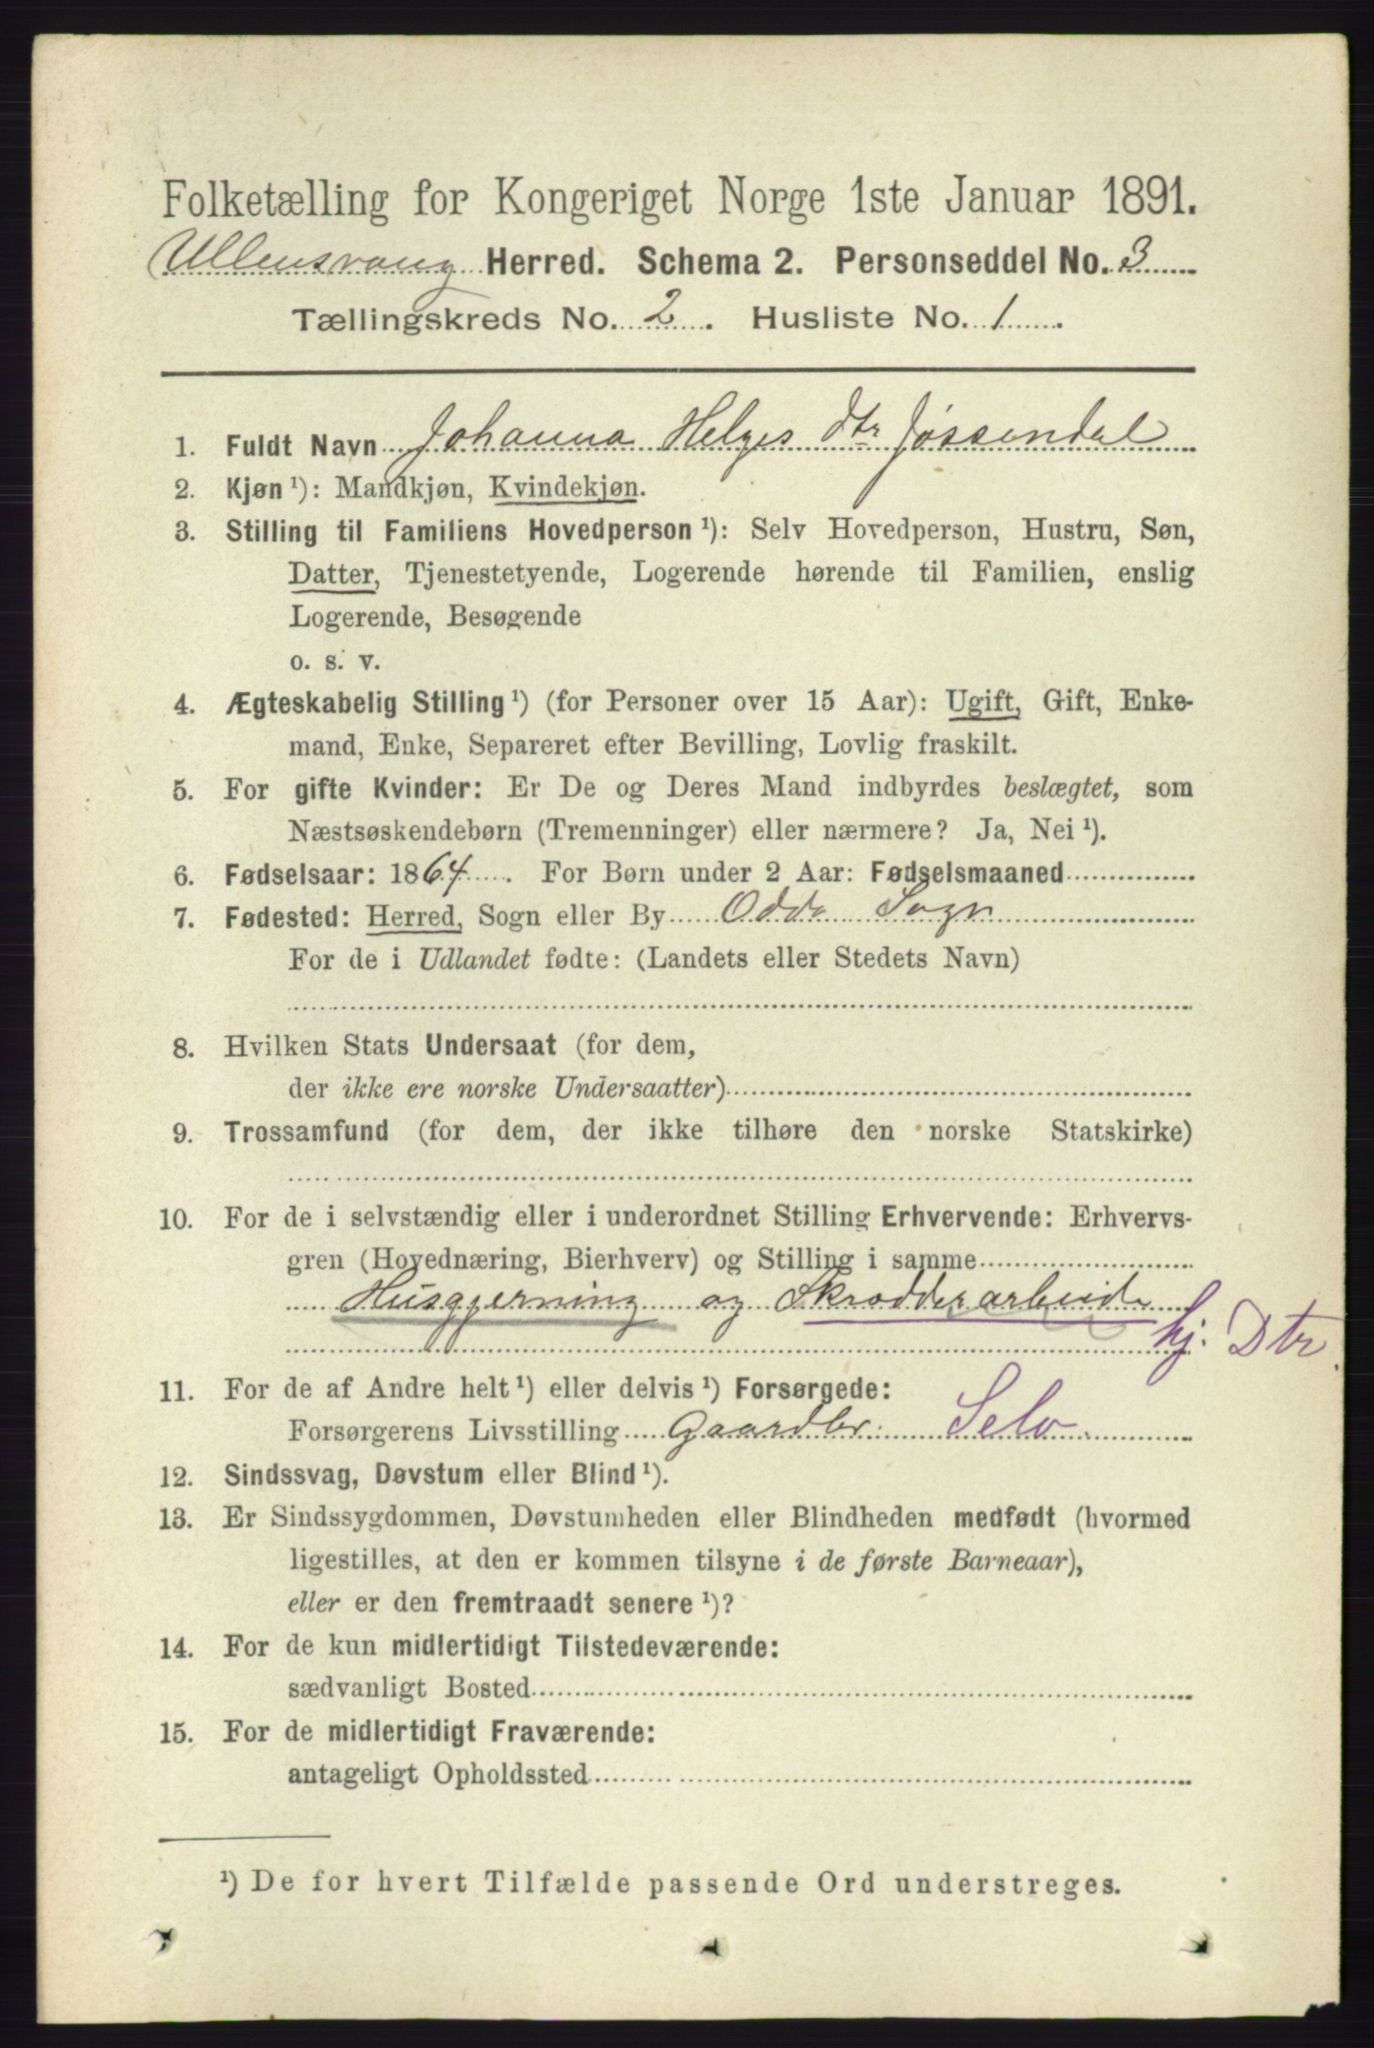 Folketælling for Kongeriget Norge 1ste Januar 1891.
Ullensvang Herred. Schema 2. Personseddel No. 3
Tællingskreds No. 2. Husliste No. 1.
1. Fuldt Navn Johanna Helges dtr Jøssendal
2. Kjøn ¹): Mandkjøn, Kvindekjøn.
3. Stilling til Familiens Hovedperson ¹): Selv Hovedperson, Hustru, Søn,
Datter, Tjenestetyende, Logerende hørende til Familien, enslig
Logerende, Besøgende
o. s. v.
4. Ægteskabelig Stilling ¹) (for Personer over 15 Aar): Ugift, Gift, Enke-
mand, Enke, Separeret efter Bevilling, Lovlig fraskilt.
5. For gifte Kvinder: Er De og Deres Mand indbyrdes beslægtet, som
Næstsøskendebørn (Tremenninger) eller nærmere? Ja, Nei ¹).
6. Fødselsaar: 1864. For Børn under 2 Aar: Fødselsmaaned
7. Fødested: Herred, Sogn eller By Odda Sogn
For de i Udlandet fødte: (Landets eller Stedets Navn)
8. Hvilken Stats Undersaat (for dem,
der ikke ere norske Undersaatter)
9. Trossamfund (for dem, der ikke tilhøre den norske Statskirke)
10. For de i selvstændig eller i underordnet Stilling Erhvervende: Erhvervs-
gren (Hovednæring, Bierhverv) og Stilling i samme
Husgjerning og Skrædderarbeide
hj. Dtr.
11. For de af Andre helt ¹) eller delvis ¹) Forsørgede:
Forsørgerens Livsstilling Gaardbr. Selv.
12. Sindssvag, Døvstum eller Blind ¹).
13. Er Sindssygdommen, Døvstumheden eller Blindheden medfødt (hvormed
ligestilles, at den er kommen tilsyne i de første Barneaar),
eller er den fremtraadt senere ¹)?
14. For de kun midlertidigt Tilstedeværende:
sædvanligt Bosted
15. For de midlertidigt Fraværende:
antageligt Opholdssted
¹) De for hvert Tilfælde passende Ord understreges.